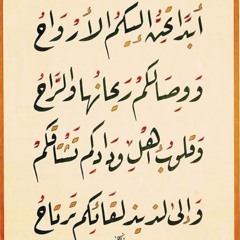 أَبَدًا تَحِنُّ إِلَيْكُمُ الأَرْوَاحُ
وَوِصَالُكُمْ رَيْحَانُهَا وَالرَّاحُ
وَقُلُوبُ أَهْلِ وِدَادِكُمْ تَشْتَاقُكُمْ
وَإِلَى لَذِيذِ لِقَائِكُمْ تَرْتَاحُ